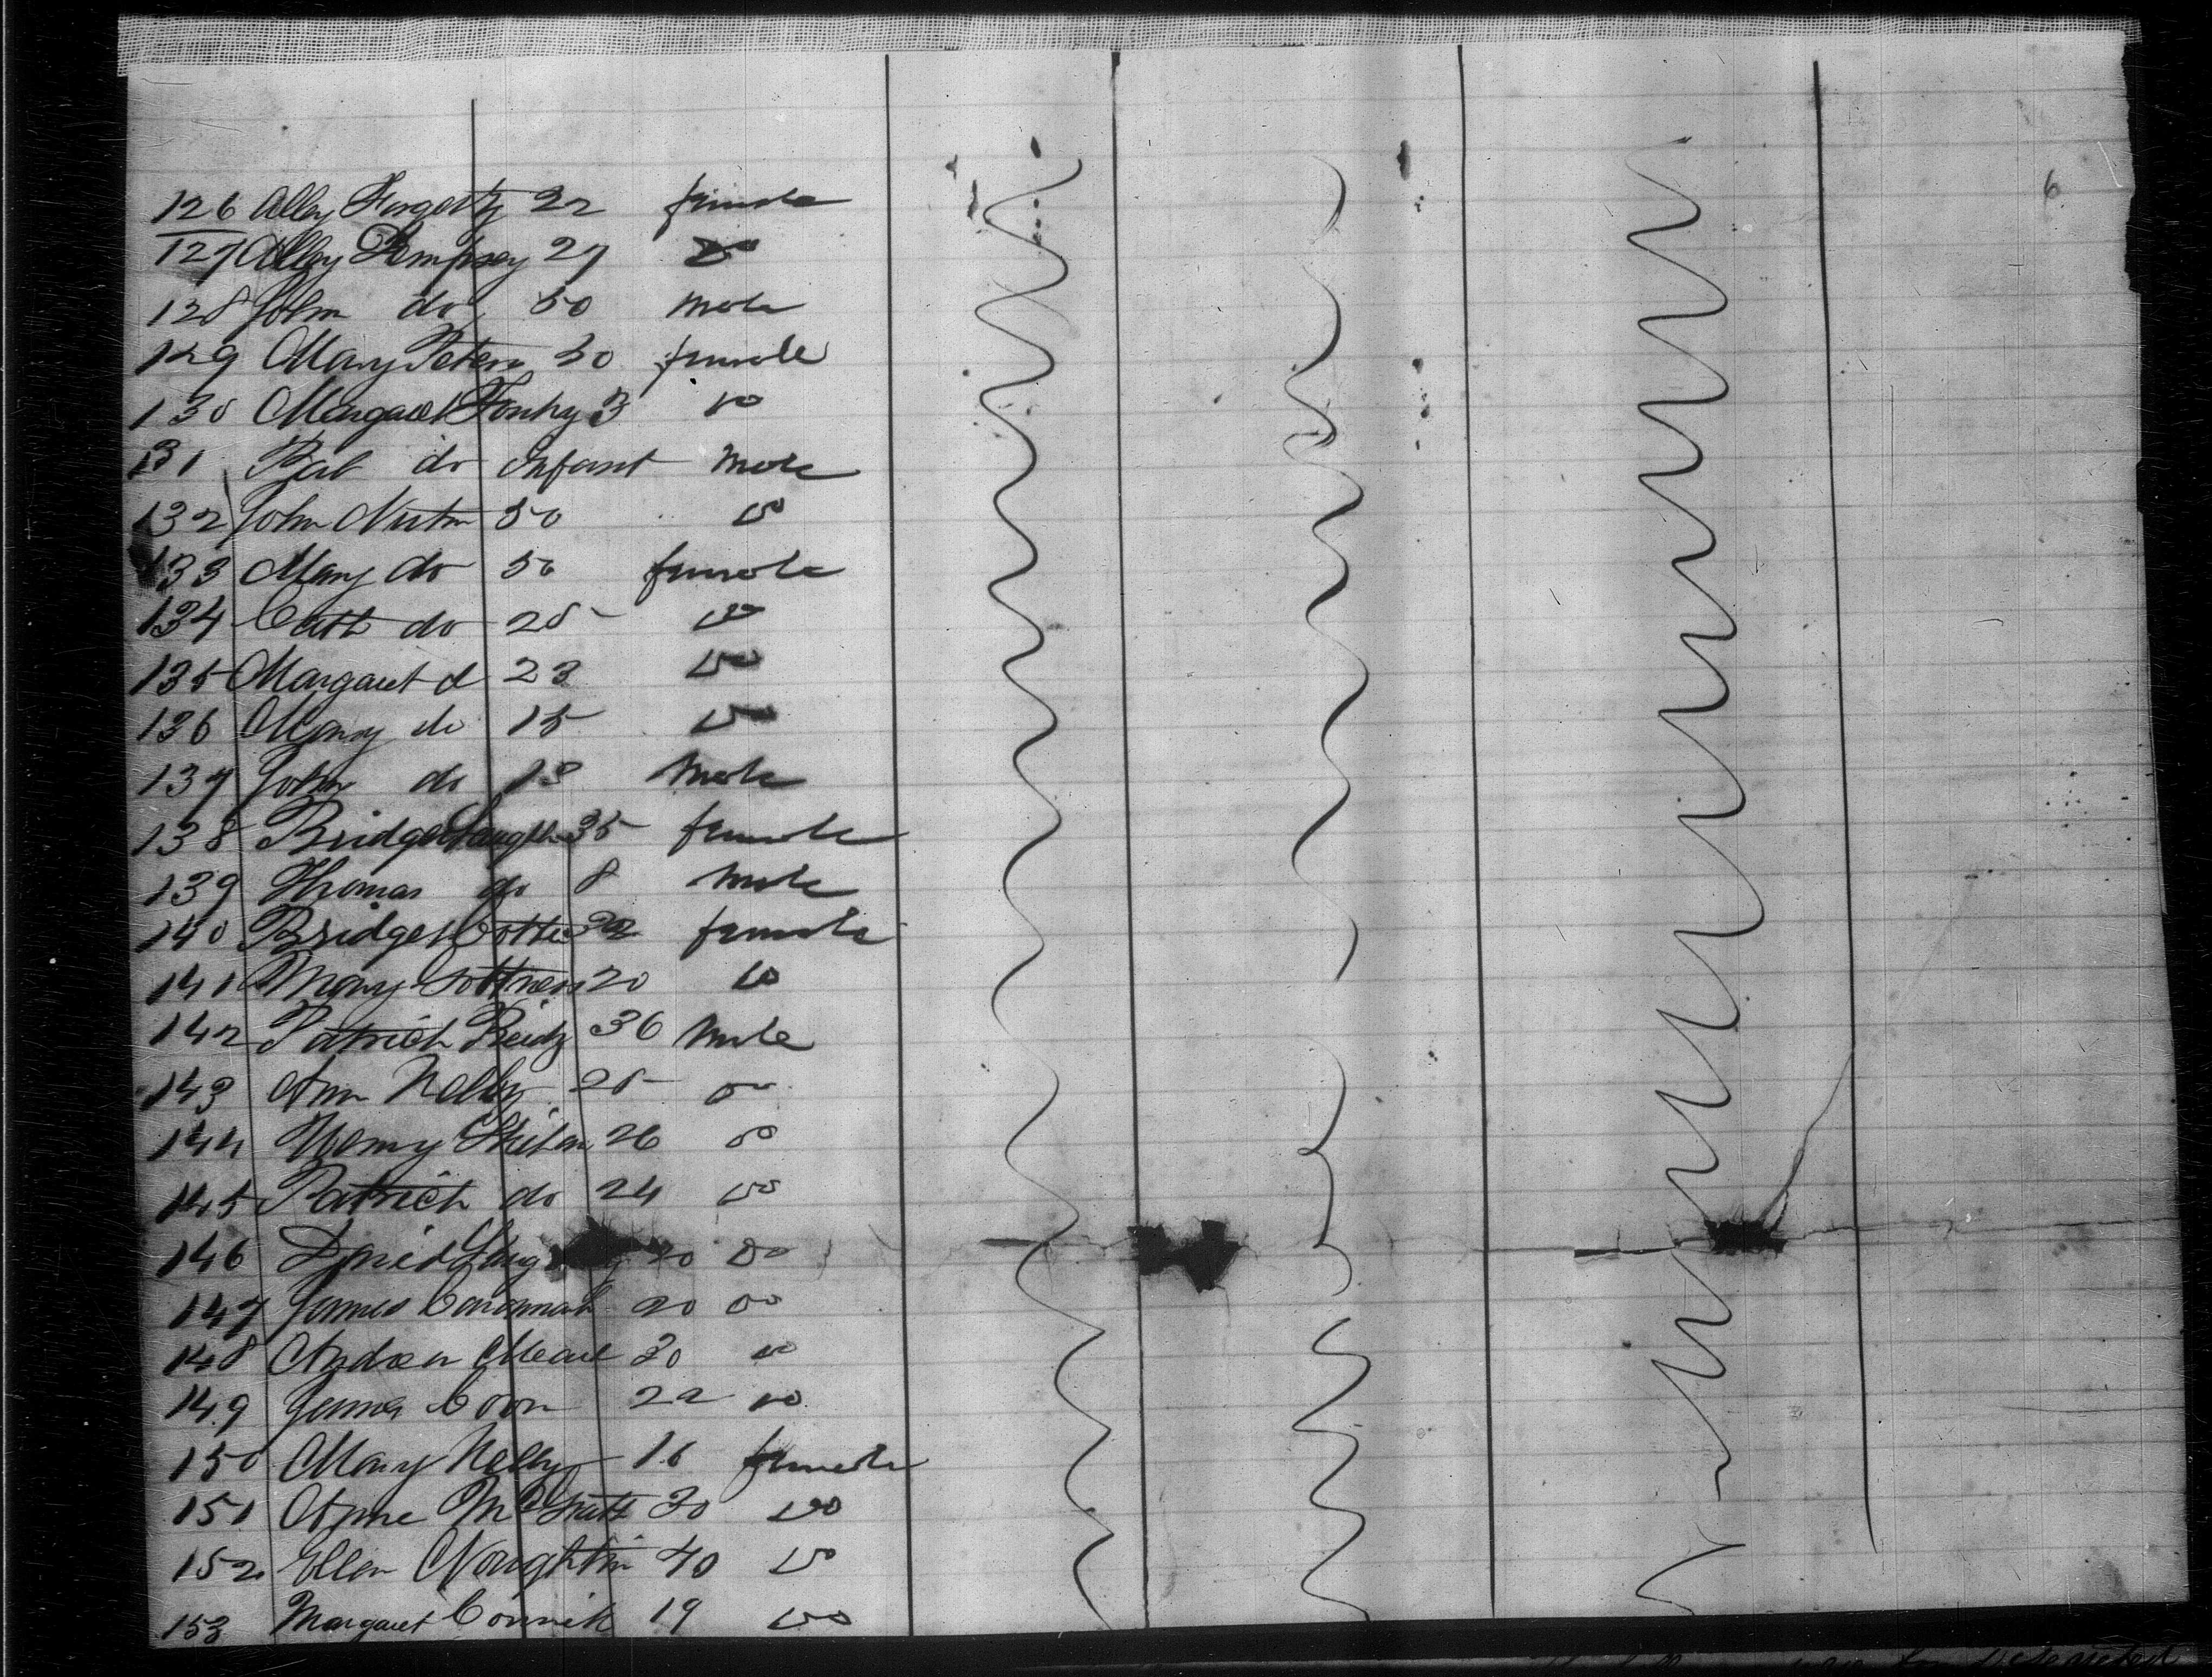 6
126 Alley Fogerty 22 female
127 Alley Dempsey 27 do
128 John do 50 male
129 Mary Peters 30 female
130 Margaret 3 do
131 Pat do Infant male
132 John 50 do
133 Mary do 50 female
134 Cath do 25 do
135 Margaret d 23 do
136 Mary do 15 do
137 John do 13 male
138 Bridget 35 female
139 Thomas do 8 male
140 Bridget female
141 Mary 20 do
142 Patrick 36 male
143 Ann Kelly 25 do
144 26 do
145 Patrick do 24 do
146 David do
147 James Cavannah 20 do
148 Andrew 30 do
149 James 22 do
150 Mary Kelly 16 female
151 30 do
152 Ellen Naughtin 40 do
153 Margaret 19 do